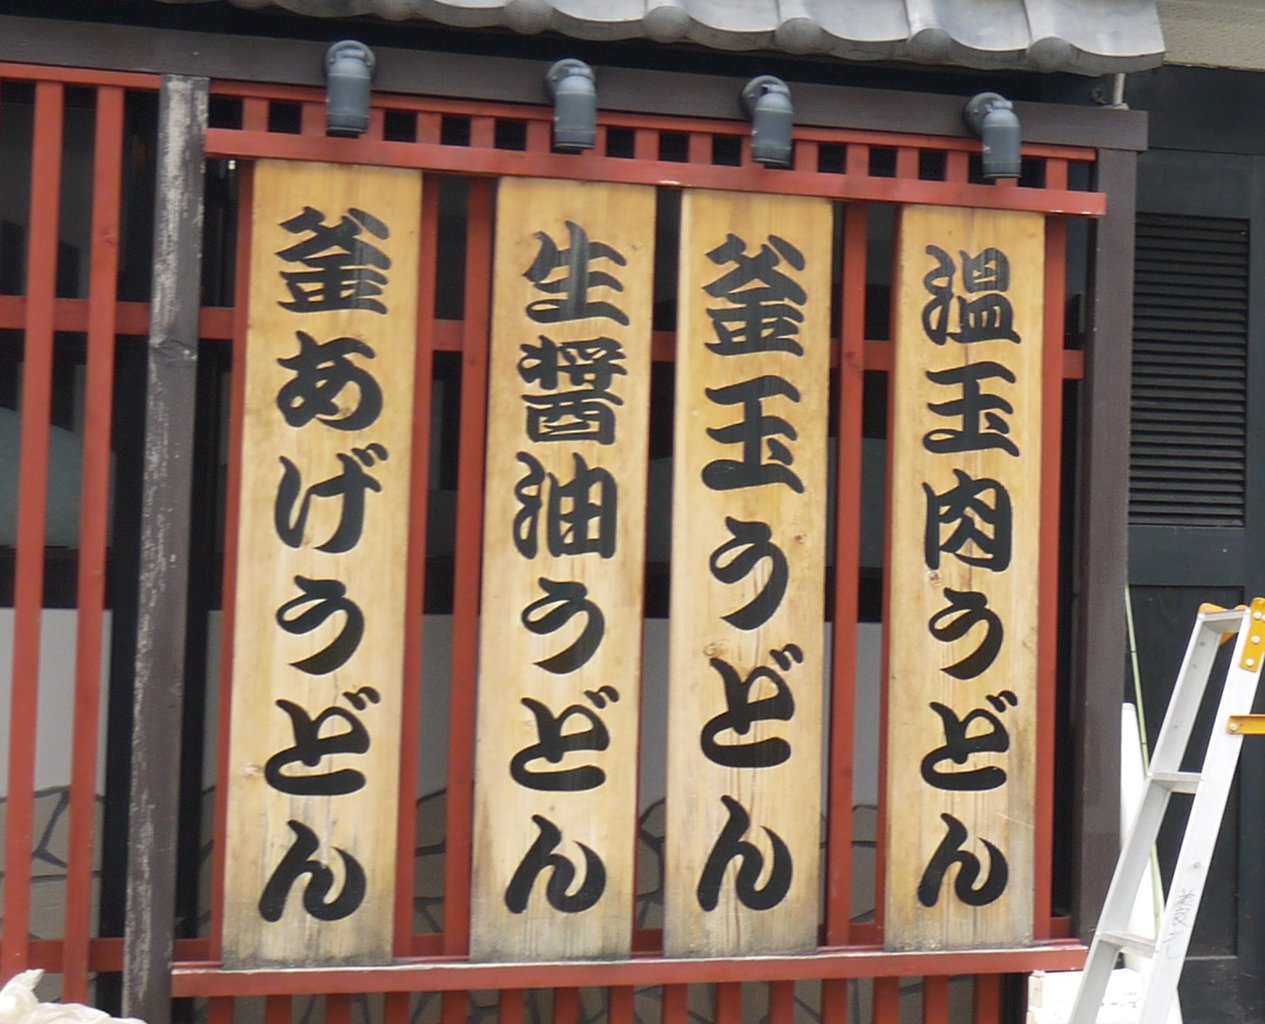 温玉肉うどん
釜玉うどん
生醤油うどん
釜あげうどん